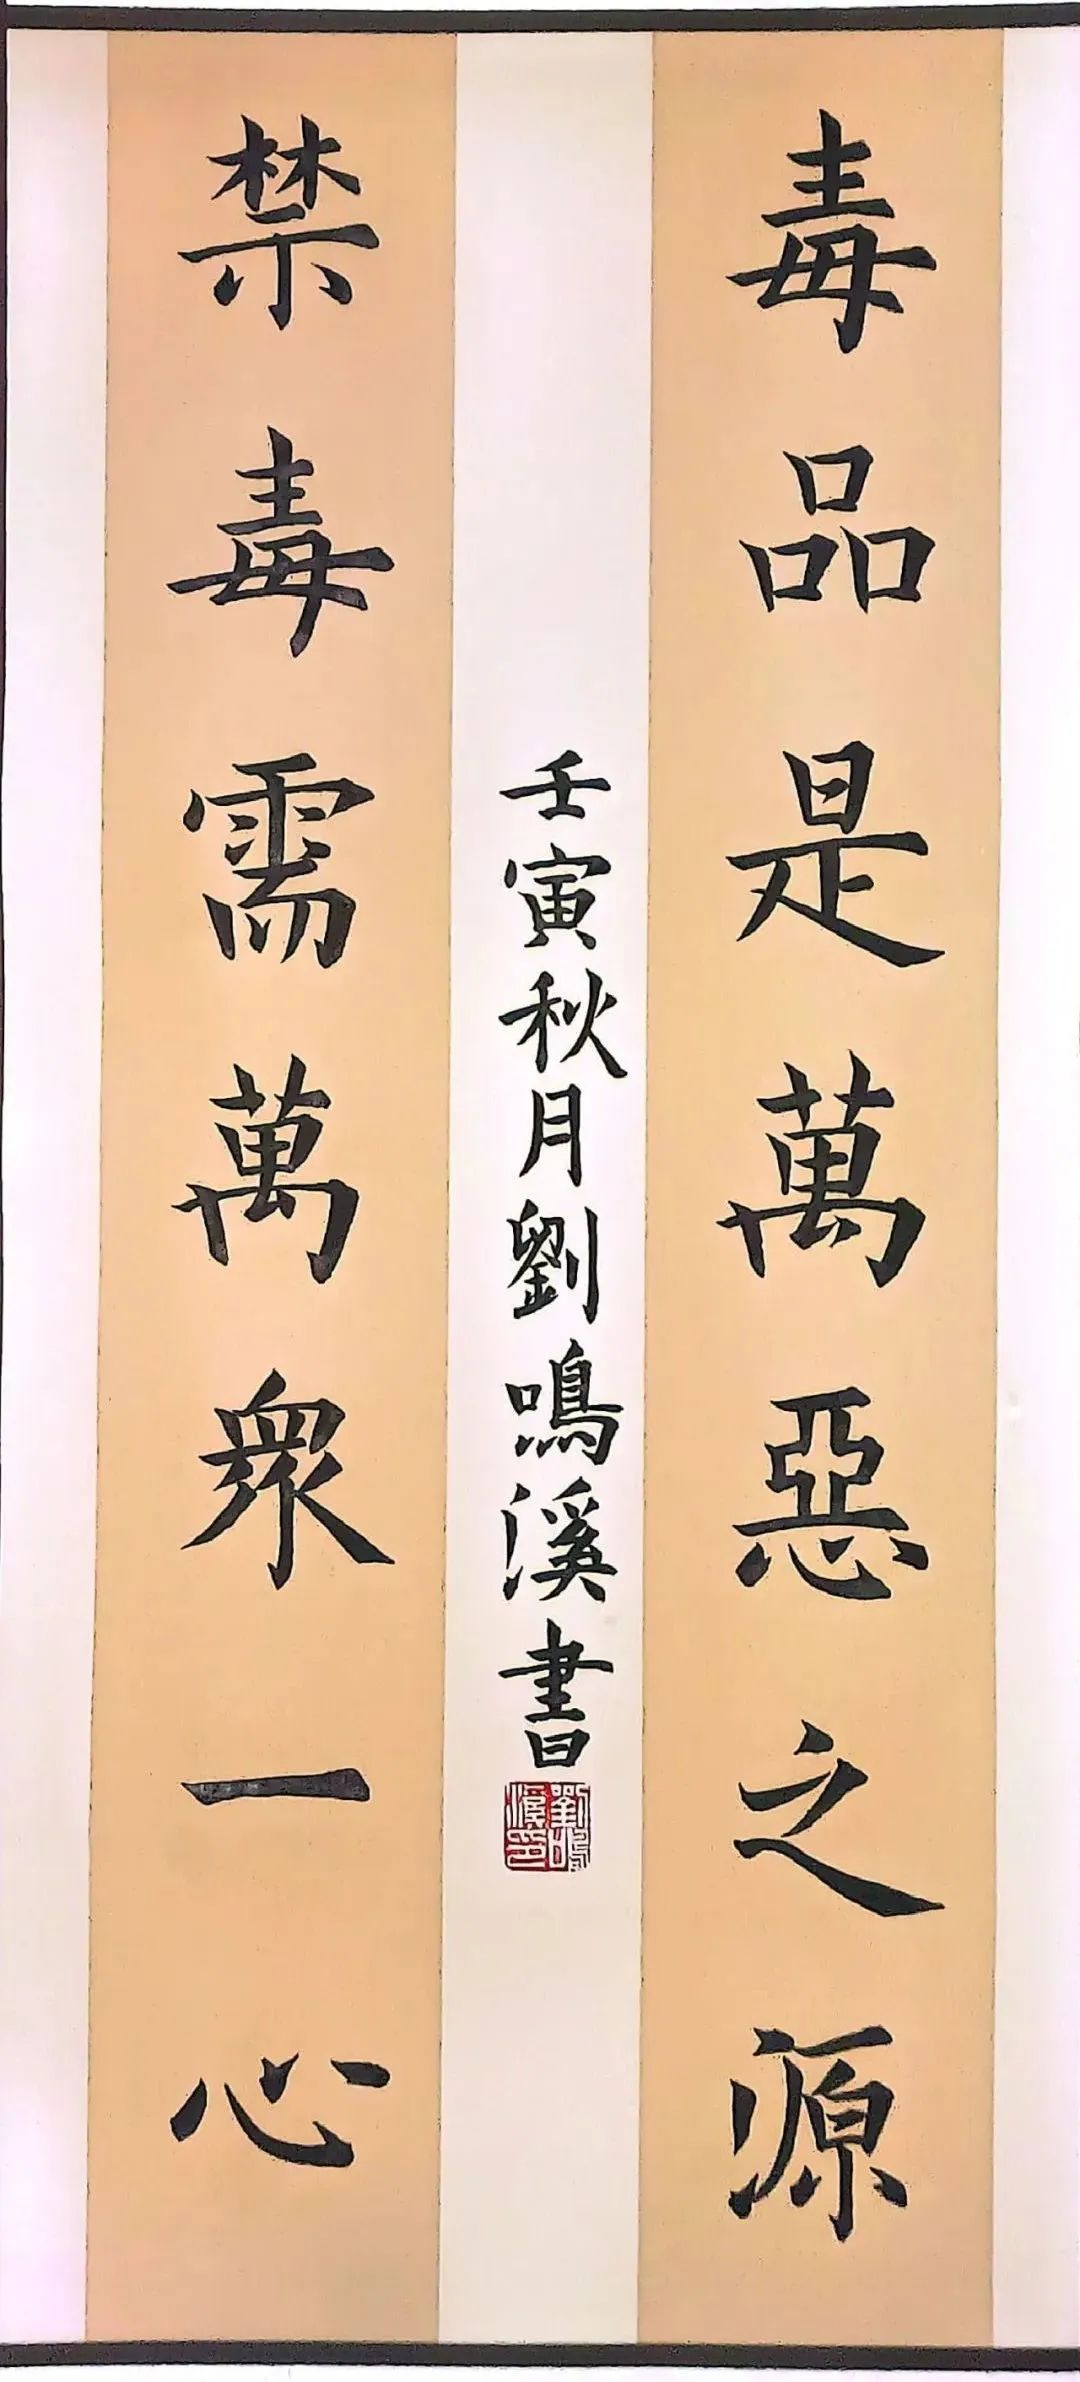 毒品是萬惡之源
禁毒需萬眾一心
壬寅秋月劉鳴溪書
劉鳴溪印